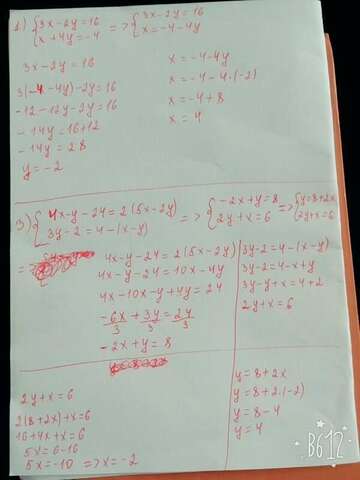 1) {3x-2y=16 => {3x-2y=16
{x+4y=-4 {x=-4-4y
3x-2y=16
3(-4-4y)-2y=16
-12-12y-2y=16
-14y=16+12
-14y=28
y=-2
x=-4-4y
x=-4-4·(-2)
x=-4+8
x=4
3) {4x-y-24=2(5x-2y) => {-2x+y=8 => {y=8+2x
{3y-2=4-(x-y) {2y+x=6 {2y+x=6
4x-y-24=2(5x-2y)
4x-y-24=10x-4y
4x-10x-y+4y=24
-6x/3+3y/3=24/3
-2x+y=8
3y-2=4-(x-y)
3y-2=4-x+y
3y-y+x=4+2
2y+x=6
2y+x=6
2(8+2x)+x=6
16+4x+x=6
5x=6-16
5x=-10 => x=-2
y=8+2x
y=8+2·(-2)
y=8-4
y=4
B612